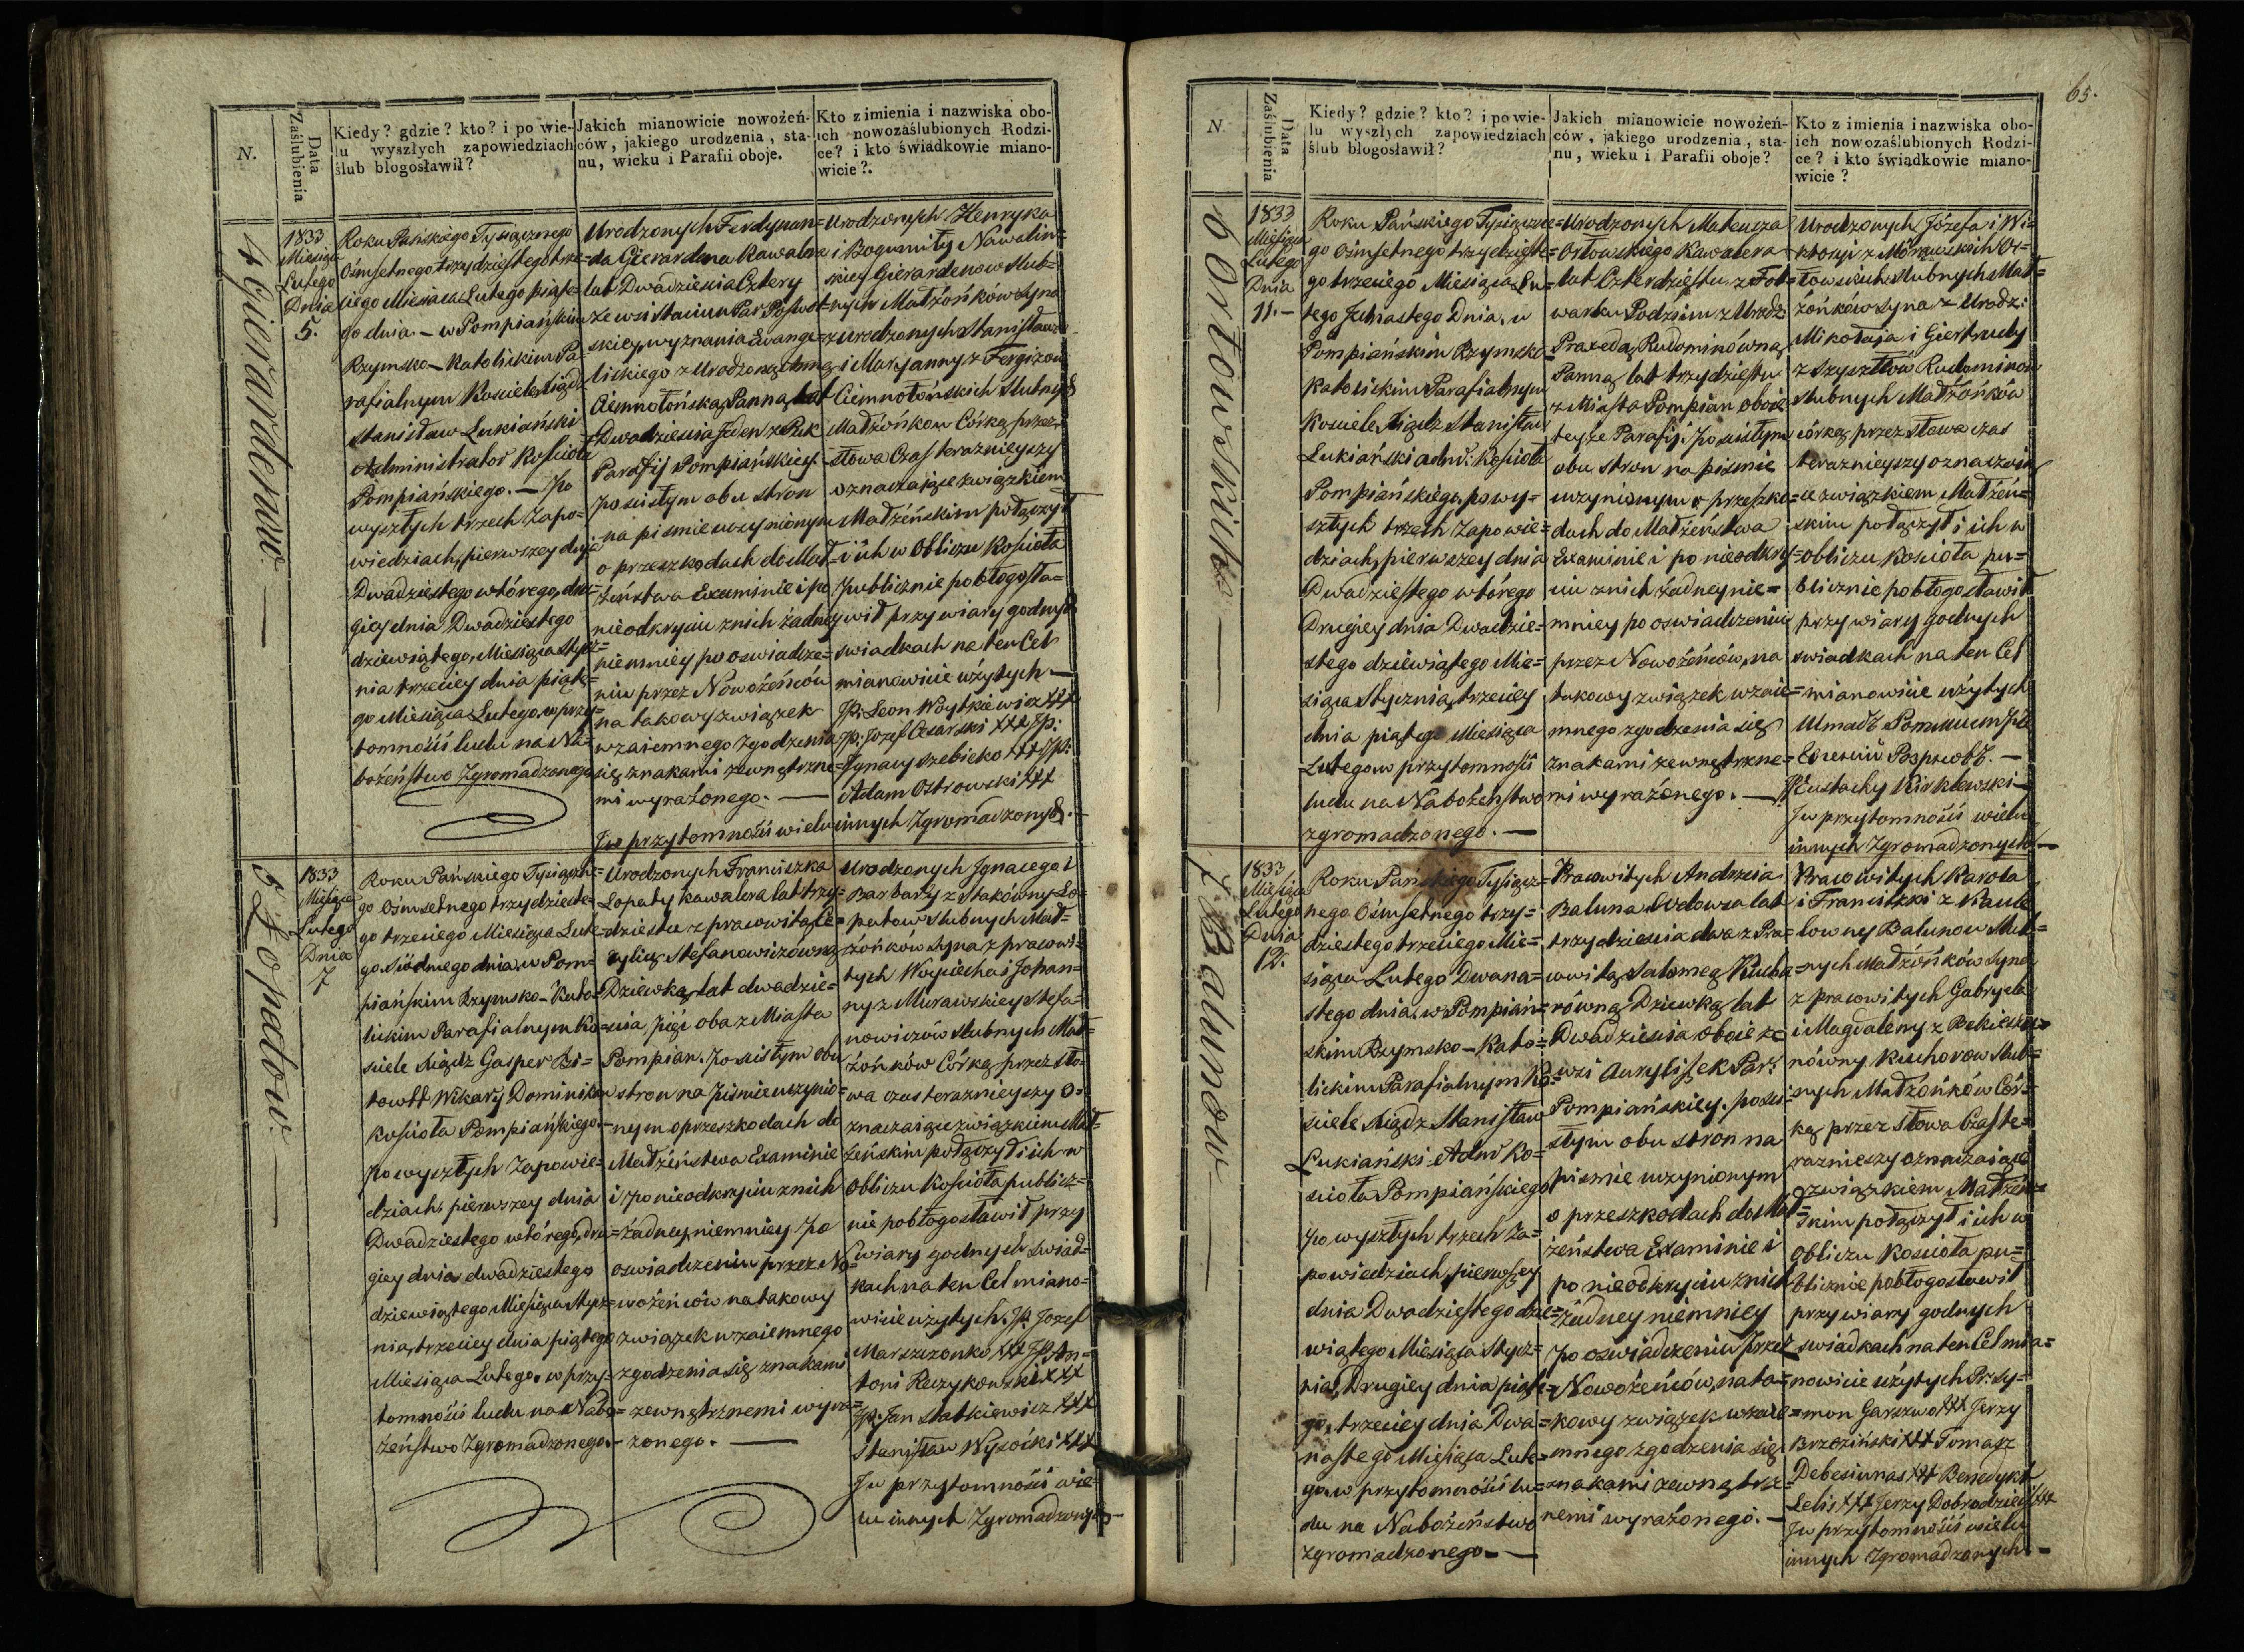 N.
Data
Zaślubienia
Kiedy? gdzie? kto? i po wie-
lu wyszłych zapowiedziach
ślub błogosławił?
Jakich mianowicie nowożeń-
ców, jakiego urodzenia, sta-
nu, wieku i Parafii oboje.
Kto z imienia i nazwiska obo-
ich nowozaślubionych Rodzi-
ce? i kto świadkowie miano-
wicie?
4 Gierardenow. —
1833
Miesiąca
Lutego
Dnia
5.
Roku Pańskiego Tysiącznego
Ośmsetnego trzydziestego trze-
ciego Miesiąca Lutego piąte-
go dnia. — w Pompiańskim
Rzymsko-Katolickim Pa-
rafialnym Kosciele Xiądz
Stanisław Lukiański
Administrator Kościoła
Pompiańskiego. — Po
wyszłych trzech Zapo=
wiedziach, pierwszey dnia
Dwadziestego wtórego, dru=
giey dnia Dwadziestego
dziewiątego, Miesiąca Stycz=
nia trzeciey dnia piąte=
go Miesiąca Lutego, w przy=
tomności ludu na Na=
bożeństwo Zgromadzonego
Urodzonych Ferdynan=
da Gierardena Kawalera
lat Dwadziescia Cztery
ze wsi Staciun Par Poswol=
skiey, wyznania Ewange=
lickiego z Urodzoną Anną
Ciemnołońską Panną lat
Dwadziescia Jeden z Puk
Parafij Pompiańskiey.
Po scisłym obu stron
na pismie uczynionym
o przeszkodach do Mał=
żeństwa Examinie i po
nieodkryciu znich żadney
niemniey po oswiadcze=
niu przez Nowożeńców
na takowy związek
wzaiemnego zgodzenia
się znakami zewnętrzne=
mi wyrażonego. —
Urodzonych Henryka
i Bogumiły Nawalin=
skiey Gierardenow Slub=
nych Małżonków Syna
z Urodzonych Stanisława
i Maryanny z Fergizow
Ciemnołońskich Slubnych
Małżonkow Córką, przez
słowa Czas teraznieyszy
oznaczaiące związkiem
Małżeńskim połączył
i ich w Obliczu Kościoła
Publicznie pobłogosła=
wił przy wiary godnych
swiadkach na ten Cel
mianowicie użytych —
JP: Leon Woytkiewicz XXX
JP: Jozef Cesarski XXX JP:
Ignacy Szebieko XXX JP:
Adam Ostrowski XXX
I w przytomności wielu innych Zgromadzonych. —
5 Łopatow. —
1833
Miesiąca
Lutego
Dnia
7
Roku Pańskiego Tysiączne=
go Ośmsetnego trzydzieste=
go trzeciego Miesiąca Lute=
go Siódmego dnia, w Pom=
piańskim Rzymsko-Kato=
lickim Parafialnym Ko=
sciele Xiądz Gasper Bi=
towtt Wikary Dominikan
Kościoła Pompiańskiego. —
Po wyszłych Zapowie=
dziach, pierwszey dnia
Dwadziestego wtórego, dru=
giey dnia dwadziestego
dziewiątego Miesiąca Stycz=
nia, trzeciey dnia piątego
Miesiąca Lutego, w przy=
tomności ludu na Nabo=
żeństwo Zgromadzonego. —
Urodzonych Franciszka
Lopaty kawalera lat trzy=
dziestu z pracowitą Ce=
cylią Stefanowiczówną
Dziewką lat dwadzie=
scia pięć oba z Miasta
Pompian. Po scisłym obu
stron na Pismie uczynio=
nym o przeszkodach do
Małżeństwa Examinie
i po nieodkryciu znich
żadney, niemniey Po
oswiadczeniu przez No=
wożeńców na takowy
związek wzaiemnego
zgodzenia się znakami
zewnętrznemi wyra=
żonego. —
Urodzonych Ignacego i
Barbary z Sakówny Lo=
patow Slubnych Mał=
żonków Syna z pracowi=
tych Woyciecha i Johan=
ny z Murawskiey Stefa=
nowiczów Slubnych Mał=
żónków Córką, przez sło=
wa czas teraznieyszy o=
znaczaiące związkiem Mał=
żeńskim połączył i ich w
Obliczu Kościoła publicz=
nie pobłogosławił przy
wiary godnych Swiad=
kach na ten Cel miano=
wicie użytych. JP. Jozef
Marszczonko XXX JP: An=
toni Reczykowski XXX
JP: Jan Statkiewicz XXX
Stanisław Wysocki XXX
I w przytomności wie=
lu innych Zgromadzonych —
65.
N.
Data
Zaślubienia
Kiedy? gdzie? kto? i po wie-
lu wyszłych zapowiedziach
ślub błogosławił?
Jakich mianowicie nowożeń-
ców, jakiego urodzenia, sta-
nu, wieku i Parafii oboje?
Kto z imienia i nazwiska obo-
ich nowozaślubionych Rodzi-
ce? i kto świadkowie miano-
wicie?
6 Orłowskich —
1833
Miesiąca
Lutego
Dnia
11. —
Roku Pańskiego Tysiączne=
go Ośmsetnego trzydzieste=
go trzeciego Miesiąca Lu=
tego Jednastego Dnia, w
Pompiańskim Rzymsko
Katolickim Parafialnym
Kosciele Xiądz Stanisław
Lukiański adm: Kościoła
Pompiańskiego, po wy=
szłych trzech Zapowie=
dziach, pierwszey dnia
Dwadziestego wtórego
Drugiey dnia Dwadzie=
stego dziewiątego Mie=
siąca Stycznia, trzeciey
dnia piątego Miesiąca
Lutego w przytomności
ludu na Nabożeństwo
zgromadzonego. —
Urodzonych Mateusza
Orłowskiego Kawalera
lat Czterdziestu z Fol=
warku Podziun z Urodz:
Praxedą Rudominówną
Panną lat trzydziestu
z Miasta Pompian oboie
teyże Parafij. Po scisłym
obu stron na pismie
uczynionym o przeszko=
dach do Małżeństwa
Examinie i po nieodkry=
ciu znich żadney nie=
mniey po oswiadczeniu
przez Nowożeńców, na
takowy związek wzaie=
mnego zgodzenia się
znakami zewnętrzne=
mi wyrażonego. —
Urodzonych Józefa i Wi=
ktoryi z Morawskich Or=
łowskich Slubnych Mał=
żonków Syna z Urodz:
Mikołaja i Giertrudy
z Szyszłow Rudominow
Slubnych Małżonków
córką, przez słowa czas
teraznieyszy oznaczaią=
ce związkiem Małżeń=
skim połączył i ich w
obliczu Kościoła pu=
blicznie pobłogosławił
przy wiary godnych
swiadkach na ten Cel
mianowicie użytych
JP Eustachy Kirklewski —
I w przytomności wielu
innych Zgromadzonych —
7 Balunow —
1833
Miesiąca
Lutego
Dnia
12.
Roku Pańskiego Tysiącz=
nego Ośmsetnego trzy=
dziestego trzeciego Mie=
siąca Lutego Dwana=
stego dnia, w Pompiań=
skim Rzymsko-Kato=
lickim Parafialnym Ko=
sciele Xiądz Stanisław
Lukiański Adm: Ko=
scioła Pompiańskiego
Po wyszłych trzech Za=
powiedziach, pierwszey
dnia Dwadziestego dzie=
wiątego Miesiąca Stycz=
nia, Drugiey dnia piąte=
go, trzeciey dnia Dwa=
nastego Miesiąca Lute=
go, w przytomności lu=
du na Nabożeństwo
zgromadzonego. —
Pracowitych Andrzeia
Baluna Wdowca lat
trzydziescia dwa z Pra=
cowitą Salomeą Kucha=
równą Dziewką lat
Dwadziescia oboie ze
wsi Auryliszek Par:
Pompiańskiey. po sci=
słym obu stron na
pismie uczynionym
o przeszkodach do Mał=
żeństwa Examinie i
po nieodkryciu znich
żadney niemniey
Po oswiadczeniu Przez
Nowożeńców, na ta=
kowy związek wzaie=
mnego zgodzenia się
znakami zewnętrz=
nemi wyrażonego. —
Pracowitych Karola
i Franciszki z Kauk
lowney Balunow Slub=
nych Małżónków Syna
z pracowitych Gabryela
i Magdaleny z Bekiesze=
nówny Kuchorow Slub=
nych Małżonków Cór=
ką przez słowa Czas te=
raznieszy oznaczaiące
związkiem Małżeń=
skim połączył i ich w
Obliczu Kościoła pu=
blicznie pobłogosławił
przy wiary godnych
swiadkach na ten Cel mia=
nowicie użytych Pr: Sy=
mon Garszwo XXX Jerzy
Brzeziński XXX Tomasz
Debesiunas XXX Benedykt
Lelis XXX Jerzy Dobrodziey XXX
I w przytomności wielu
innych Zgromadzonych. —